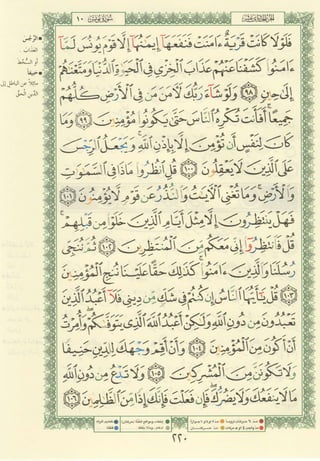 فَلَوْلَا كَانَتْ قَرْيَةٌ ءَامَنَتْ فَنَفَعَهَآ إِيمَٰنُهَآ إِلَّا قَوْمَ يُونُسَ لَمَّآ
ءَامَنُوا۟ كَشَفْنَا عَنْهُمْ عَذَابَ ٱلْخِزْىِ فِى ٱلْحَيَوٰةِ ٱلدُّنْيَا وَمَتَّعْنَٰهُمْ
إِلَىٰ حِينٍ ٩٨ وَلَوْ شَآءَ رَبُّكَ لَءَامَنَ مَن فِى ٱلْأَرْضِ كُلُّهُمْ
جَمِيعًا أَفَأَنتَ تُكْرِهُ ٱلنَّاسَ حَتَّىٰ يَكُونُوا۟ مُؤْمِنِينَ ٩٩ وَمَا
كَانَ لِنَفْسٍ أَن تُؤْمِنَ إِلَّا بِإِذْنِ ٱللَّهِ وَيَجْعَلُ ٱلرِّجْسَ
عَلَى ٱلَّذِينَ لَا يَعْقِلُونَ ١٠٠ قُلِ ٱنظُرُوا۟ مَاذَا فِى ٱلسَّمَٰوَٰتِ
وَٱلْأَرْضِ وَمَا تُغْنِى ٱلْءَايَٰتُ وَٱلنُّذُرُ عَن قَوْمٍ لَّا يُؤْمِنُونَ ١٠١
فَهَلْ يَنتَظِرُونَ إِلَّا مِثْلَ أَيَّامِ ٱلَّذِينَ خَلَوْا۟ مِن قَبْلِهِمْ
قُلْ فَٱنتَظِرُوٓا۟ إِنِّى مَعَكُم مِّنَ ٱلْمُنتَظِرِينَ ١٠٢ ثُمَّ نُنَجِّى
رُسُلَنَا وَٱلَّذِينَ ءَامَنُوا۟ كَذَٰلِكَ حَقًّا عَلَيْنَا نُنجِ ٱلْمُؤْمِنِينَ
١٠٣ قُلْ يَٰٓأَيُّهَا ٱلنَّاسُ إِن كُنتُمْ فِى شَكٍّ مِّن دِينِى فَلَآ أَعْبُدُ ٱلَّذِينَ
تَعْبُدُونَ مِن دُونِ ٱللَّهِ وَلَٰكِنْ أَعْبُدُ ٱللَّهَ ٱلَّذِى يَتَوَفَّىٰكُمْ وَأُمِرْتُ
أَنْ أَكُونَ مِنَ ٱلْمُؤْمِنِينَ ١٠٤ وَأَنْ أَقِمْ وَجْهَكَ لِلدِّينِ حَنِيفًا
وَلَا تَكُونَنَّ مِنَ ٱلْمُشْرِكِينَ ١٠٥ وَلَا تَدْعُ مِن دُونِ ٱللَّهِ
مَا لَا يَنفَعُكَ وَلَا يَضُرُّكَ فَإِن فَعَلْتَ فَإِنَّكَ إِذًا مِّنَ ٱلظَّٰلِمِينَ ١٠٦
١٠
الرِّجْسَ
العذاب
أو السُّخْط
حنيفاً
مائلاً عن الباطل إلى
الدِّين الحقّ
٢٢٠